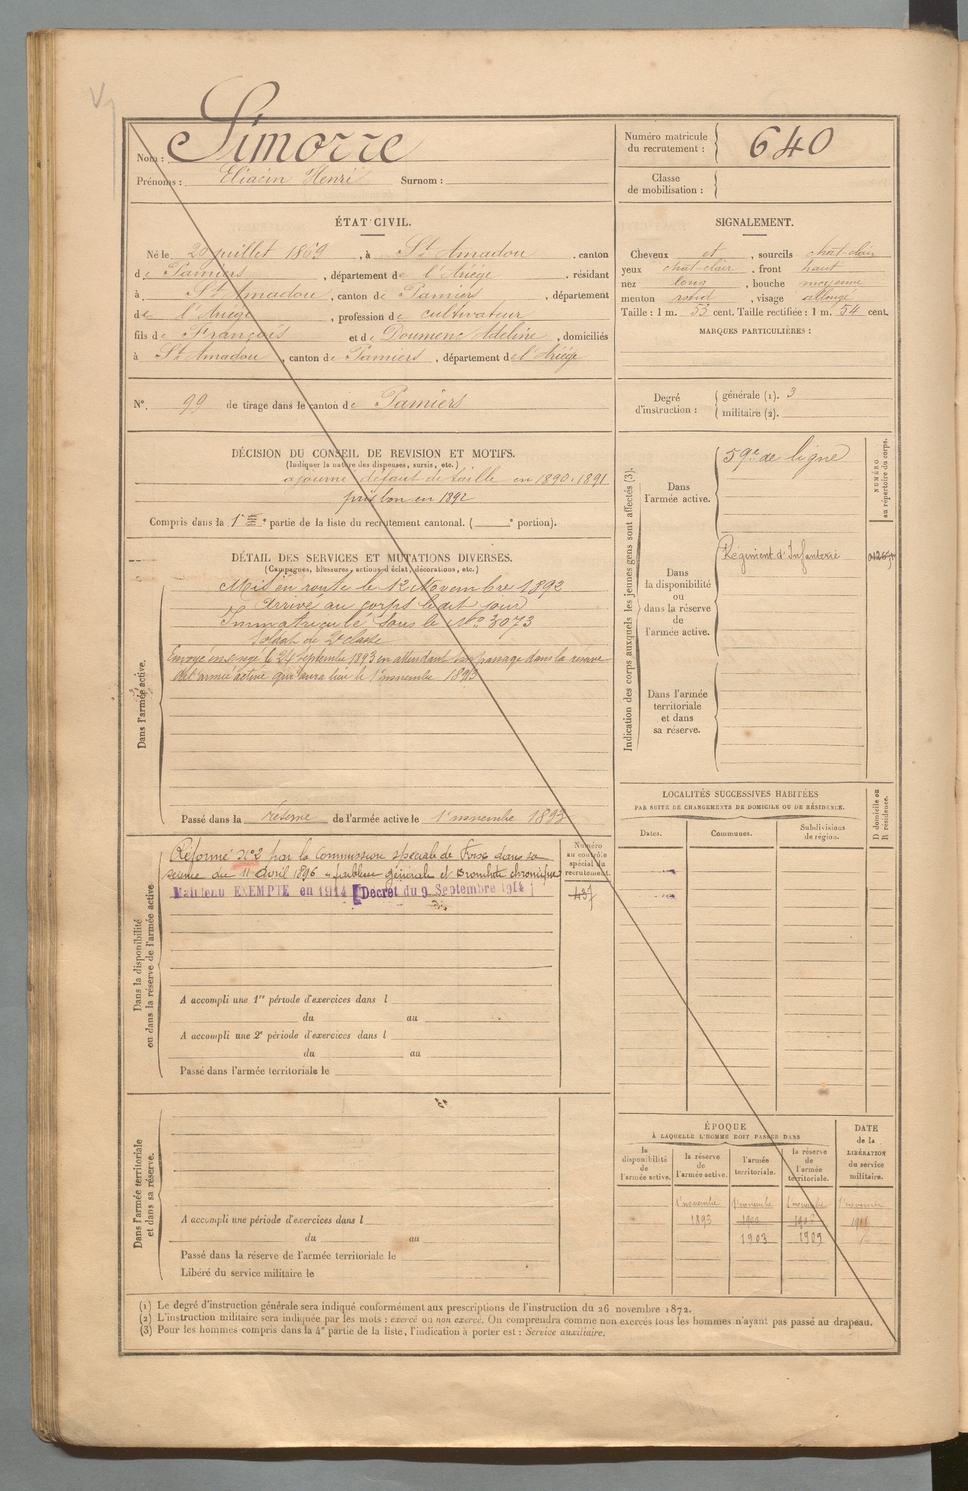 Nom : Simorre
Prénoms : Eliacin Henri Surnom :
Numéro matricule du recrutement : 640
Classe de mobilisation :
ÉTAT CIVIL.
Né le 20 juillet 1869, à St Amadou, canton
de Pamiers, département de l'Ariège, résidant
à St Amadou, canton de Pamiers, département
de l'Ariège, profession de cultivateur
fils de François et de Doumenc Adeline, domiciliés
à St Amadou, canton de Pamiers, département de l'Ariège
N° 99 de tirage dans le canton de Pamiers
SIGNALEMENT.
Cheveux et, sourcils chat-clair
yeux chat-clair, front haut
nez long, bouche moyenne
menton rond, visage allongé
Taille : 1 m. 53 cent. Taille rectifiée : 1 m. 54 cent.
MARQUES PARTICULIÈRES :
Degré d'instruction : générale (1). 3
militaire (2).
DÉCISION DU CONSEIL DE REVISION ET MOTIFS.
(Indiquer la nature des dispenses, sursis, etc.)
ajourné défaut de taille en 1890-1891
pris bon en 1892
Compris dans la 1re partie de la liste du recrutement cantonal. ( e portion).
DÉTAIL DES SERVICES ET MUTATIONS DIVERSES.
(Campagnes, blessures, actions d'éclat, décorations, etc.)
Dans l'armée active.
Mis en route le 12 Novembre 1892
Arrivé au corps le dit jour
Immatriculé sous le No 3073
Soldat de 2e classe
Envoyé en congé le 24 septembre 1893 en attendant son passage dans la reserve
de l'armée active qui aura lieu le 1er novembre 1893
Passé dans la réserve de l'armée active le 1er novembre 1893
Indication des corps auxquels les jeunes gens sont affectés (3).
Dans l'armée active. 59e de ligne
NUMÉRO au répertoire du corps.
Dans la disponibilité ou dans la réserve de l'armée active. Régiment d'Infanterie
Dans l'armée territoriale et dans sa réserve.
LOCALITÉS SUCCESSIVES HABITÉES
PAR SUITE DE CHANGEMENTS DE DOMICILE OU DE RÉSIDENCE.
Dates. Communes. Subdivisions de région. D domicile ou R résidence.
Dans la disponibilité ou dans la réserve de l'armée active
Réformé No 2 par la Commission spéciale de Foix dans sa
séance du 11 Avril 1896 "faiblesse générale et Bronchite chronique"
Maintenu EXEMPTÉ en 1914 [Décret du 9 Septembre 1914]
Numéro au contrôle spécial du recrutement.
437
A accompli une 1re période d'exercices dans l
du au
A accompli une 2e période d'exercices dans l
du au
Passé dans l'armée territoriale le
Dans l'armée territoriale et dans sa réserve.
A accompli une période d'exercices dans l
du au
Passé dans la réserve de l'armée territoriale le
Libéré du service militaire le
ÉPOQUE
À LAQUELLE L'HOMME DOIT PASSER DANS
la disponibilité de l'armée active.
la réserve de l'armée active.
l'armée territoriale.
la réserve de l'armée territoriale.
DATE de la LIBÉRATION du service militaire.
1er novembre 1er novembre 1er novembre 1er novembre
1893
1903 1909
(1) Le degré d'instruction générale sera indiqué conformément aux prescriptions de l'instruction du 26 novembre 1872.
(2) L'instruction militaire sera indiquée par les mots : exercé ou non exercé. On comprendra comme non exercés tous les hommes n'ayant pas passé au drapeau.
(3) Pour les hommes compris dans la 4e partie de la liste, l'indication à porter est : Service auxiliaire.